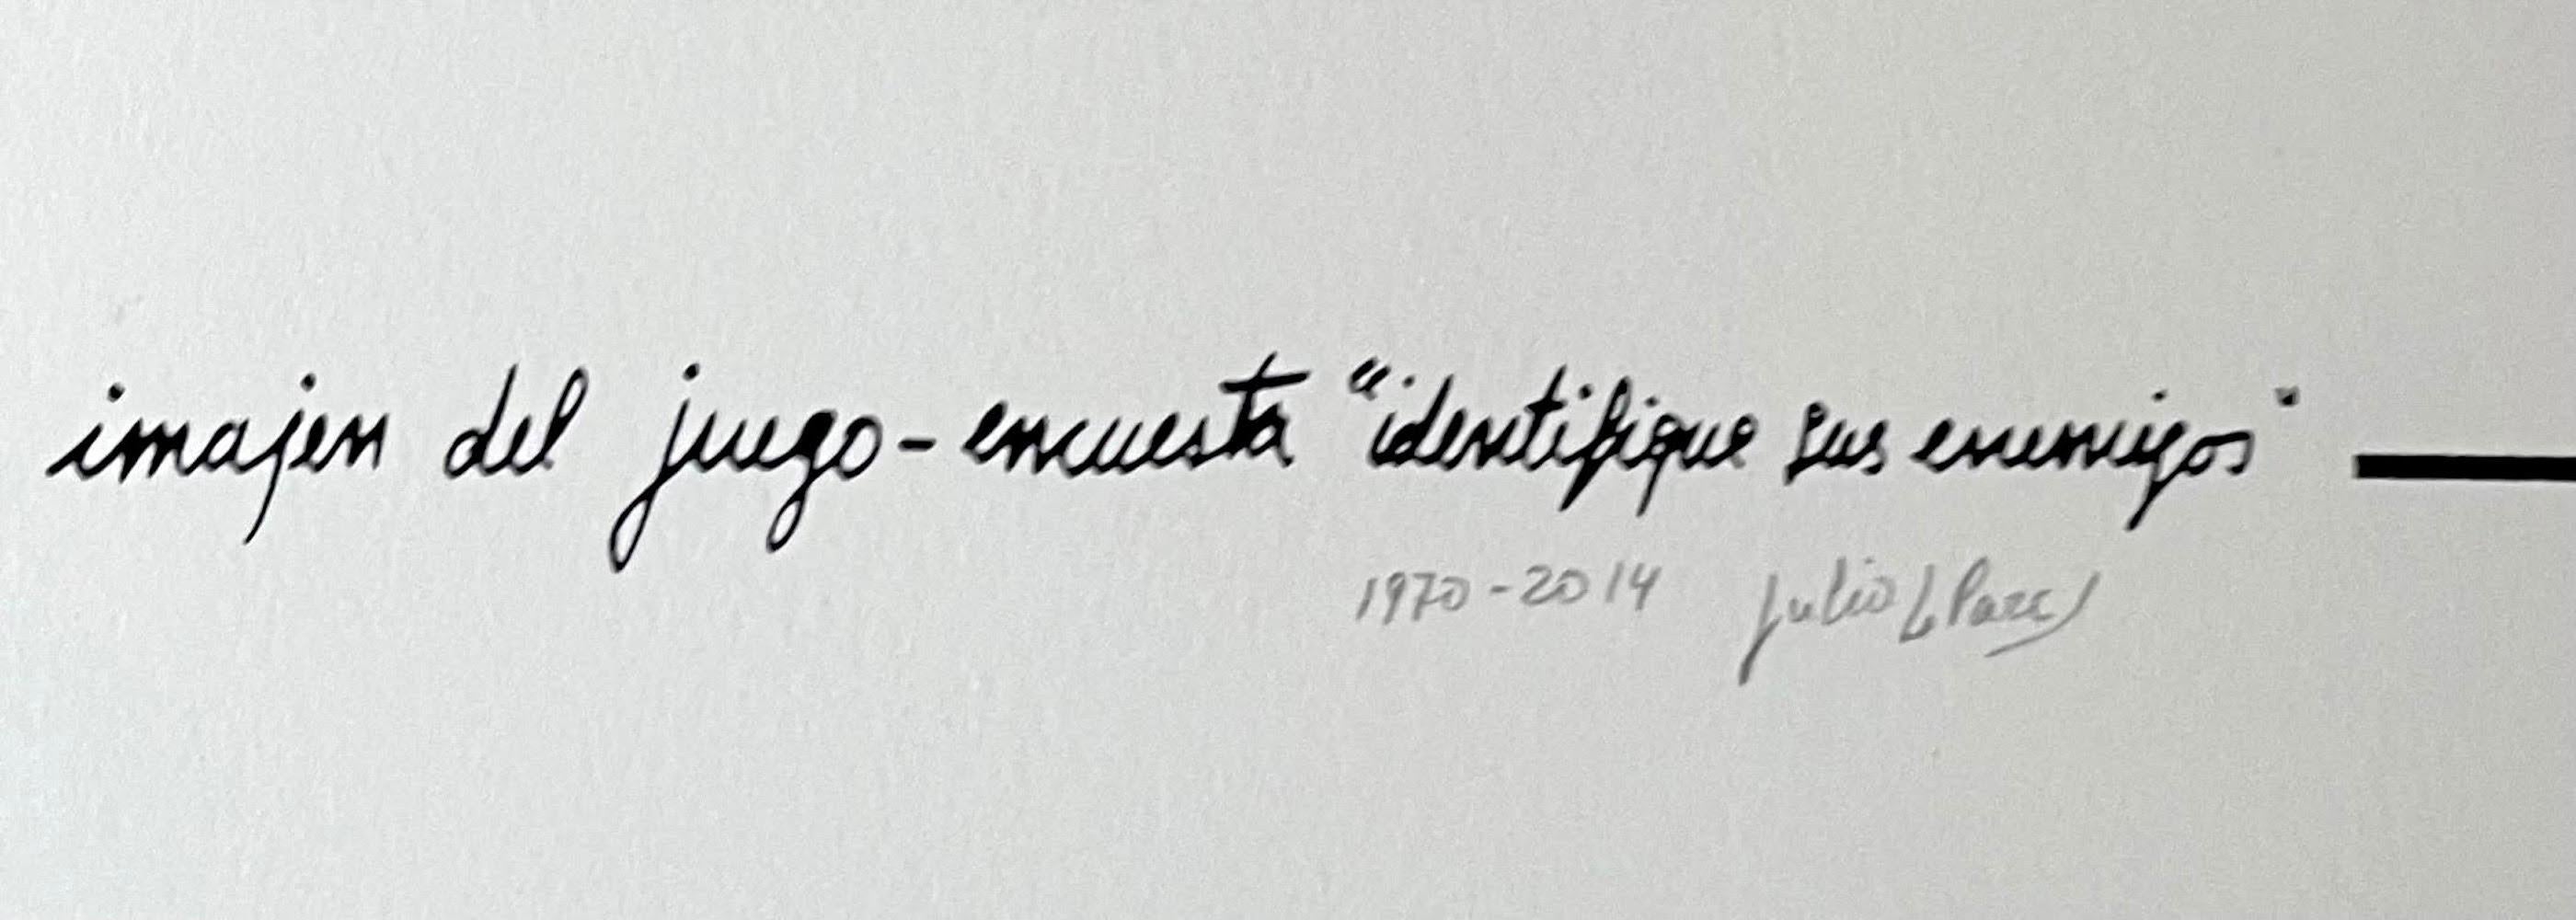 imajen del juego-encuesta "identifique sus enemigos"
1970-2014 Julio Le Parc